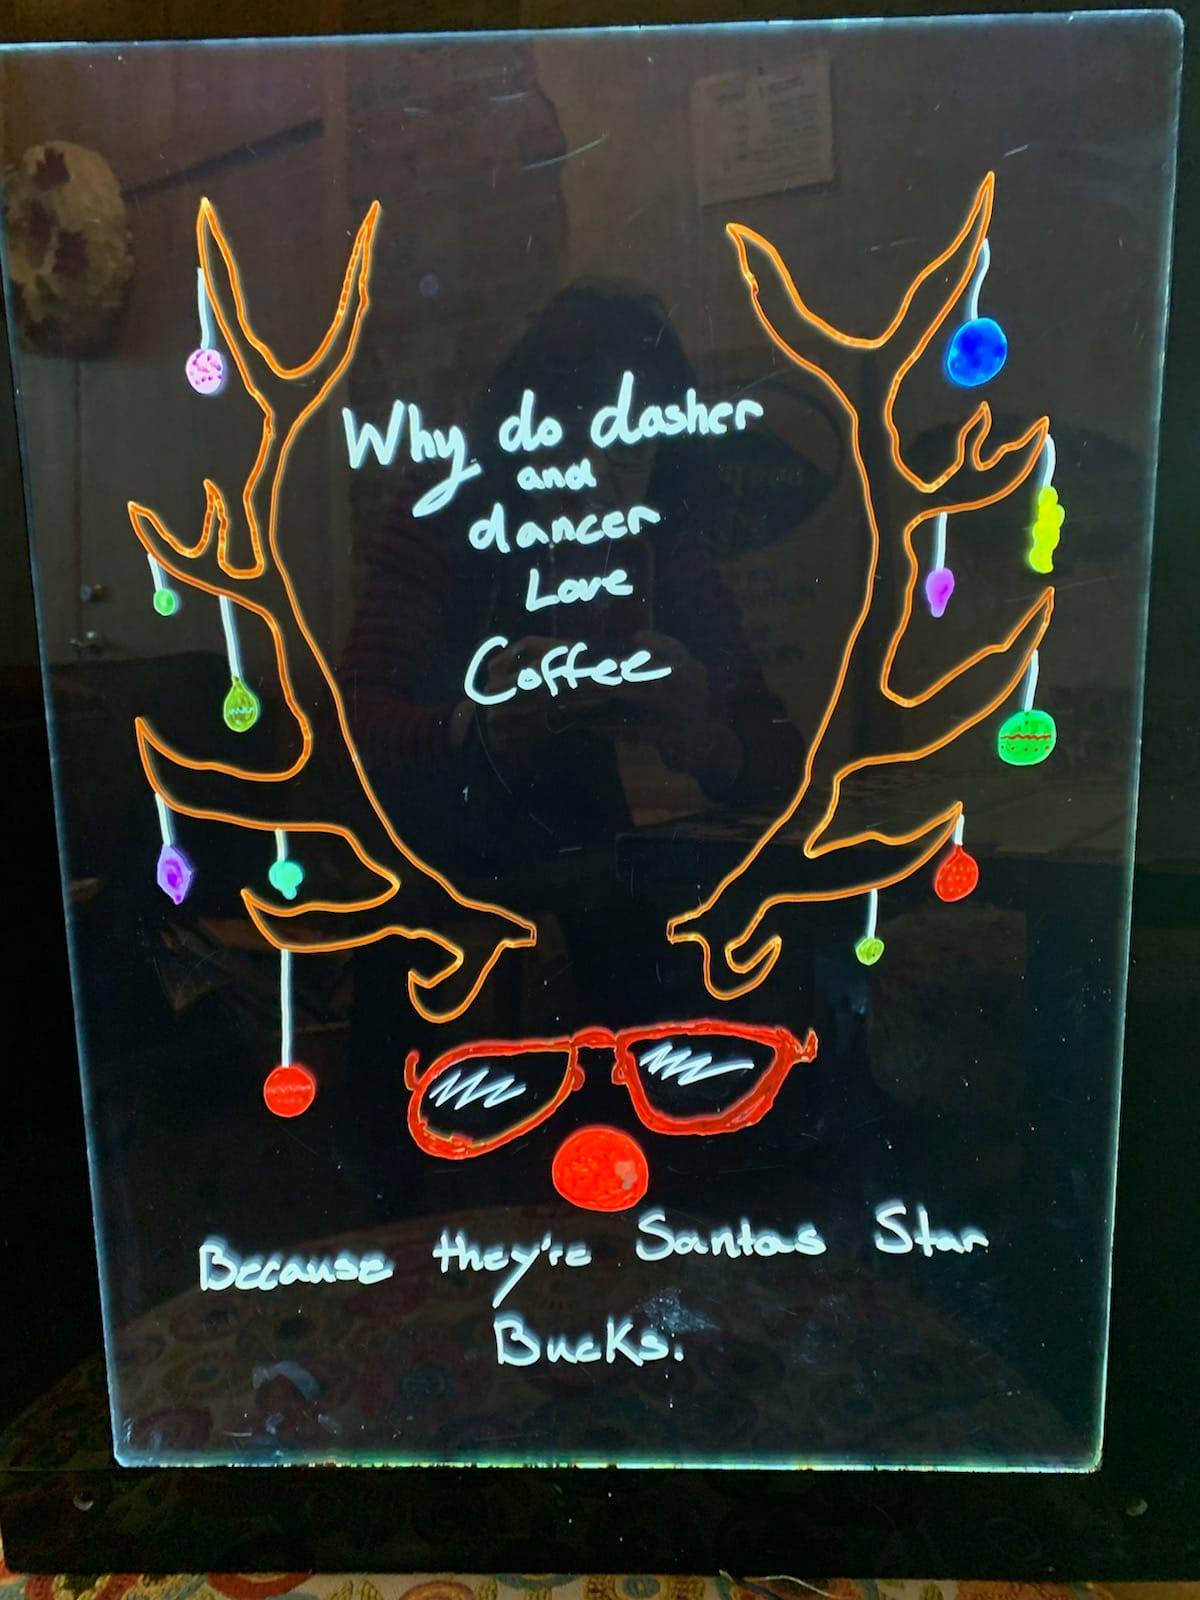 Why do dasher
and
dancer
Love
Coffee
Because they're Santas Star
Bucks.